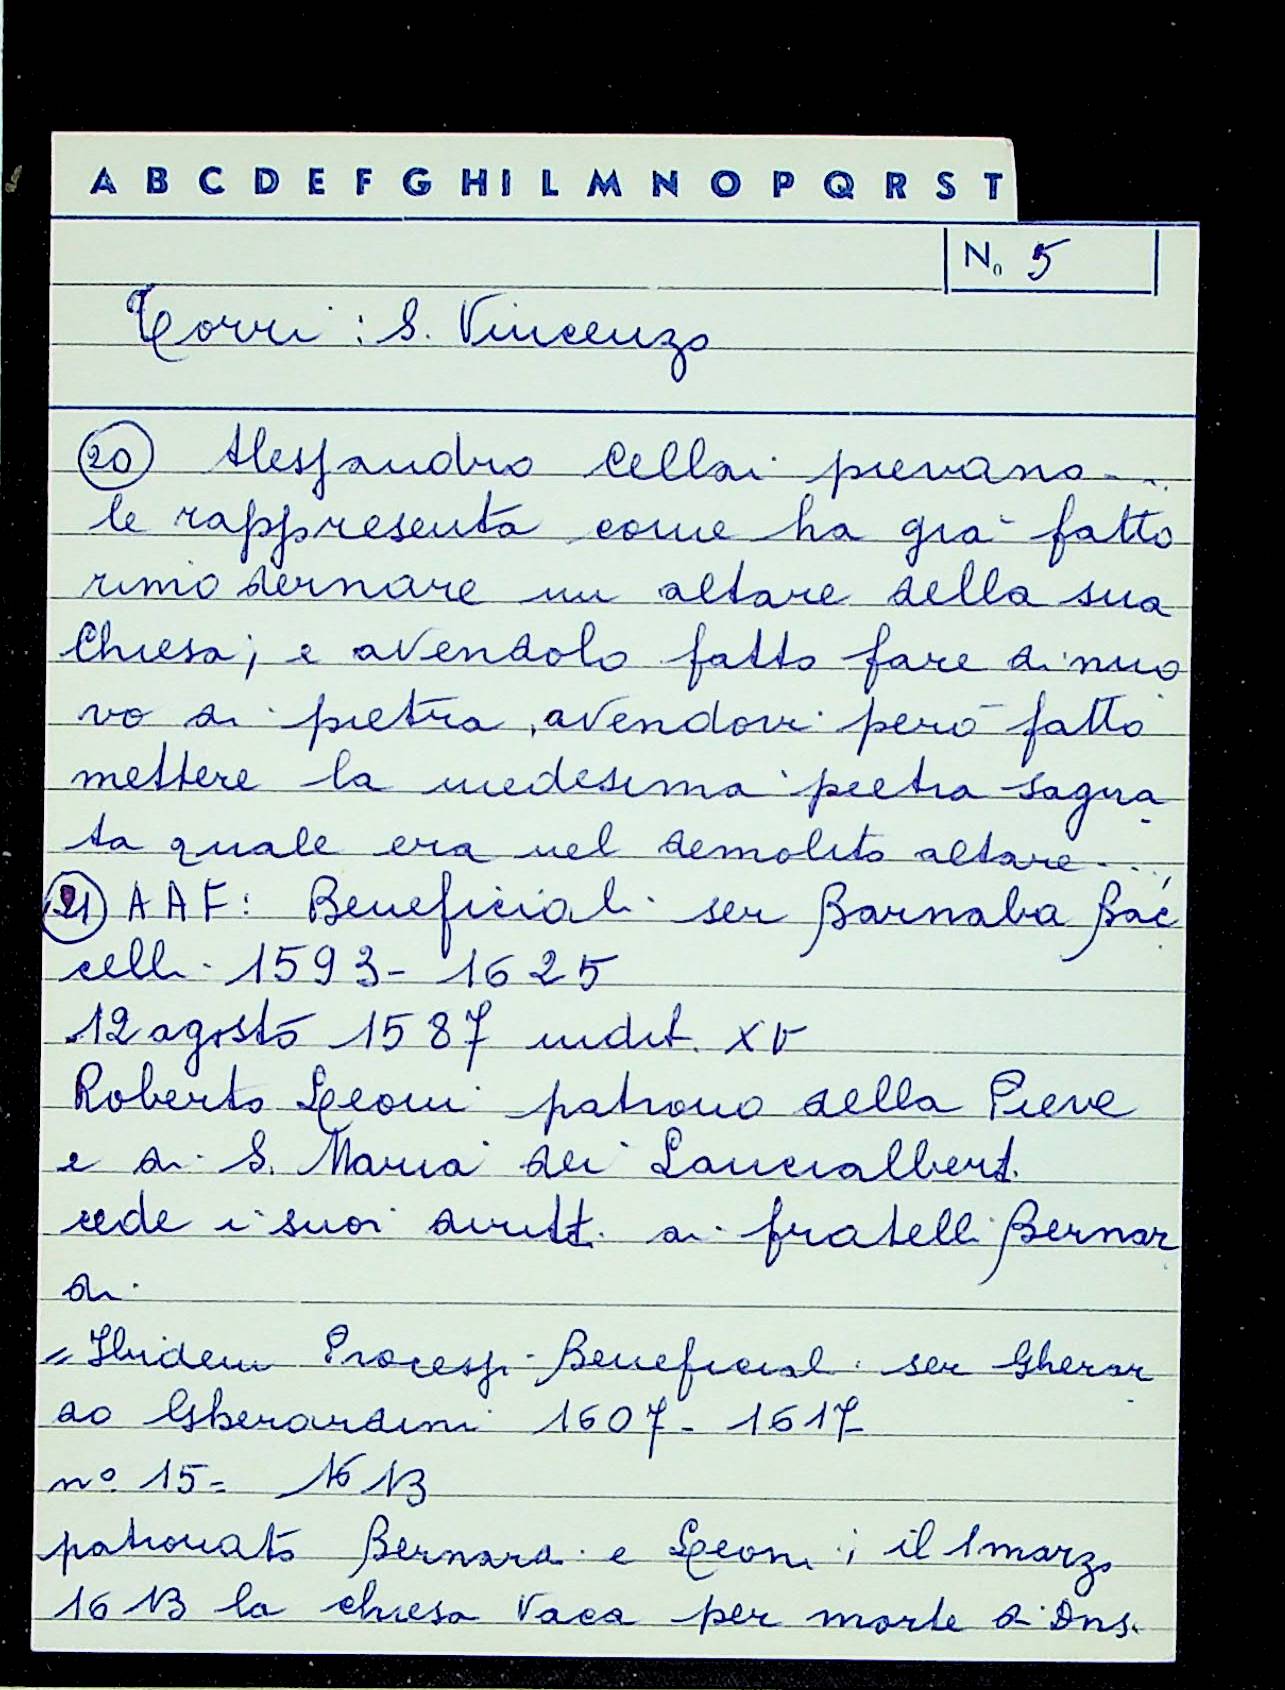 A B C D E F G H I L M N O P Q R S T
N. 5
Torri: S. Vincenzo
20 Alessandro Cellai pievano...
le rappresenta come ha già fatto
rimodernare un altare della sua
Chiesa; e avendolo fatto fare di nuo
vo di pietra, avendovi però fatto
mettere la medesima pietra sagra
ta quale era nel demolito altare...,
21 AAF: Beneficiali ser Barnaba Bac
celli 1593-1625
12 agosto 1587 indit. XV
Roberto Leoni patrono della Pieve
e di S. Maria dei Lancialberti
cede i suoi diritti ai fratelli Bernar
di.
= Ibidem Processi Beneficial. ser Gherar
do Gherardini 1607-1617
n° 15= 1613
patronato Bernardi e Leoni; il 1 marzo
1613 la chiesa vaca per morte di Dns.